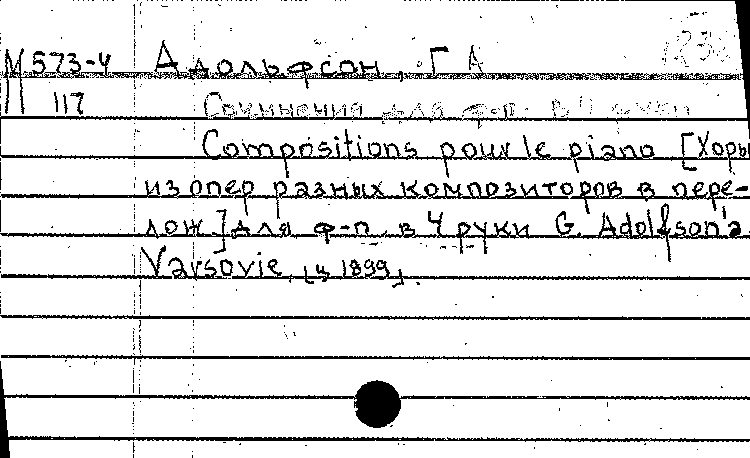 М573-4 Адольфсон, Г А 1232
117 Сочинения для ф-п. в 4 руки
Compositions pour le piano [Хоры
из опер разных композиторов в пере-
лож.] для ф-п. в 4 руки G. Adolfson'a
Varsovie, [ц. 1899].